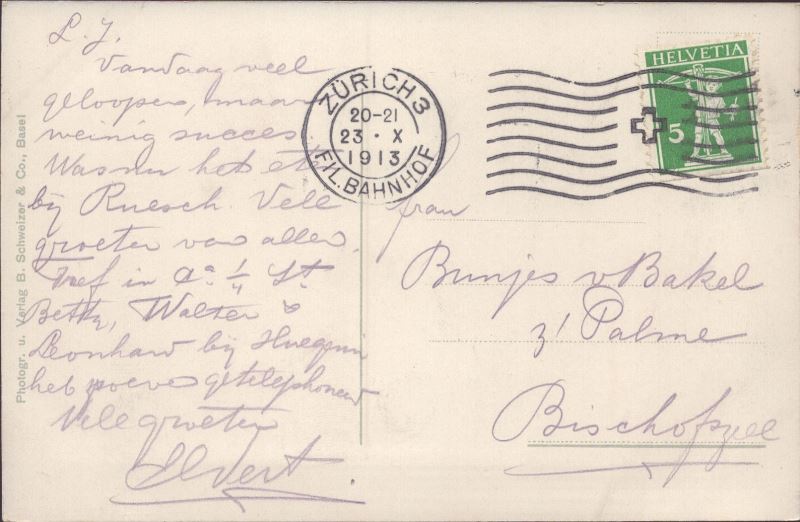 L. J.
Vandaag veel
geloopen, maar
weinig succes.
Was het
bij Ruesch. Vele
groeten van allen.
Tref in
Betty, Walter &
Leonhard bij
heb getelephoneerd
Vele groeten
Photogr. u. Verlag B. Schweizer & Co., Basel
ZÜRICH 3
20-21
23 · X
1913
FIL. BAHNHOF
HELVETIA
5
frau
Bunjes v Bakel
z' Palme
Bischofszell